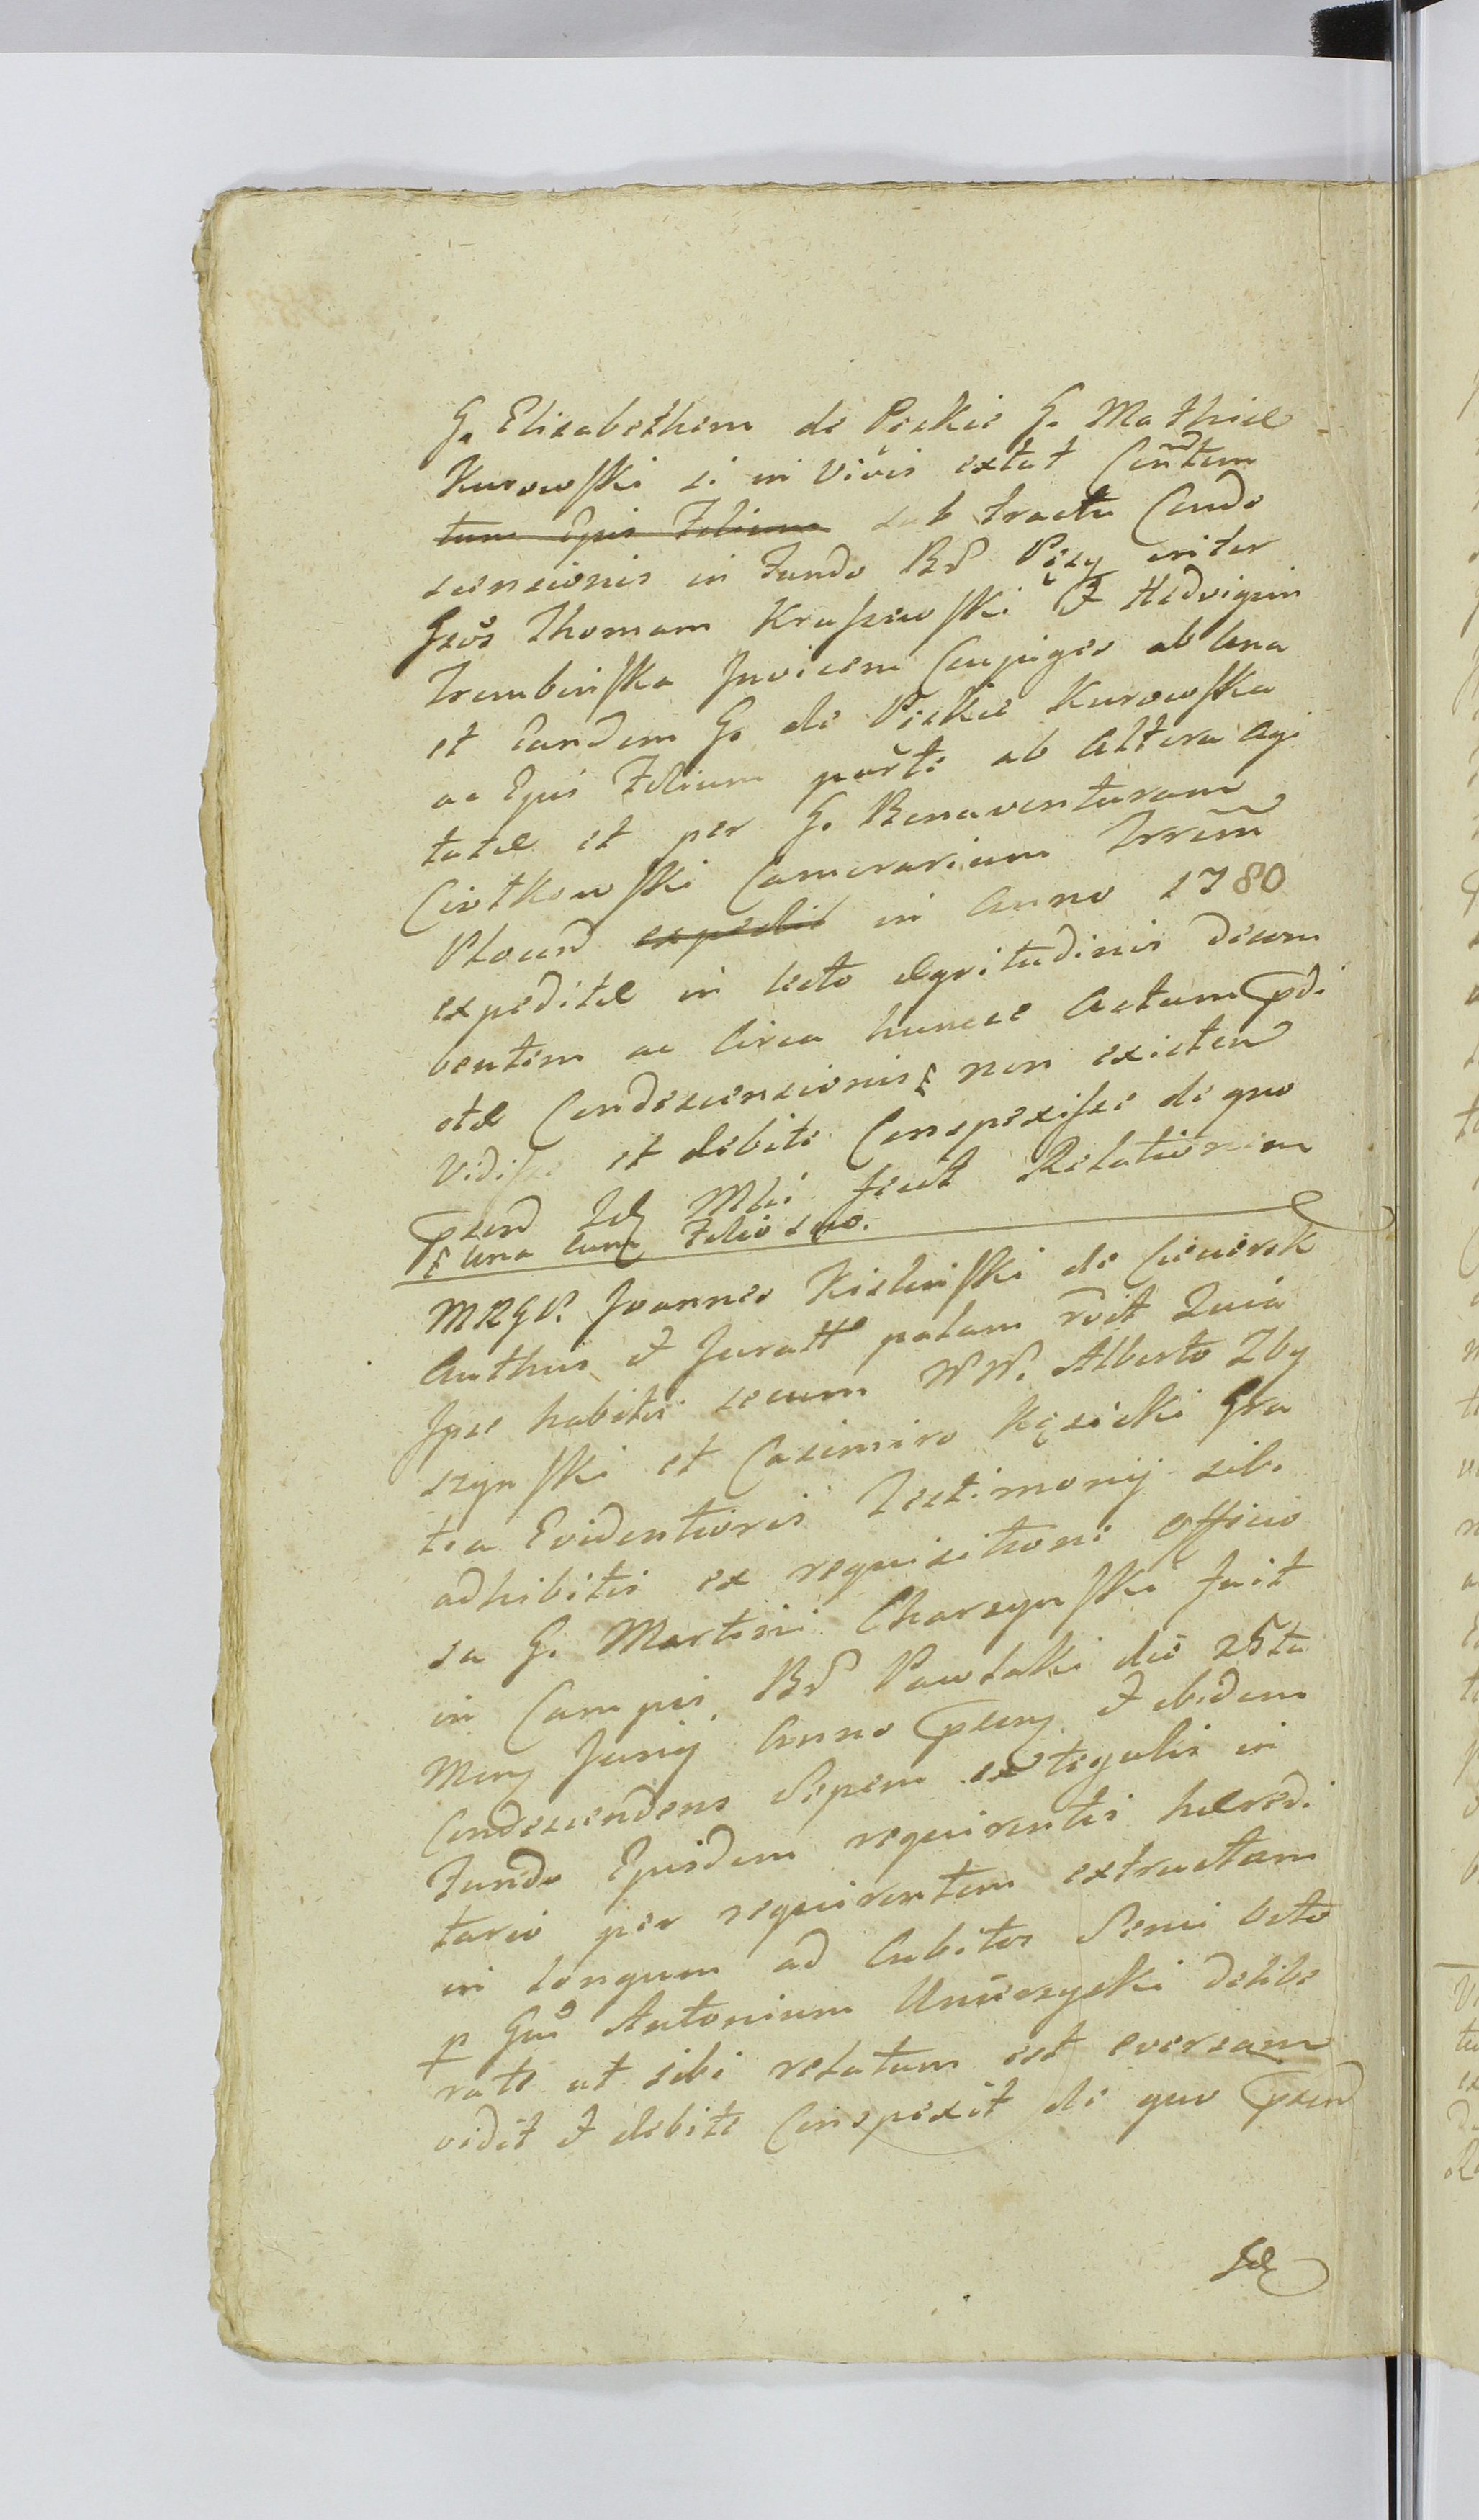 G. Elisabethem de Peskie G. Mathiæ
Kurowski si in vivis extat Conttem
tum Ejus Filium sub tractu Conde
scensionis in Fundo Bd Pęsy inter
Gsos Thomam Kraszewski & Hedvigim
Trembinska Invicem Conjuges ab una
et eandem G. de Peskie Kurowska
ac Ejus Filium parte ab altera agi
tatæ et per G. Bonaventuram
Ciotkowski Camerarium Trrem
Plocen expedit in Anno 1780
expeditæ in lecto ægritudinis decum
bentem ac circa huncce Actum pdi
ctæ Condescensionis non existen
vidisse et debite Conspexisse de quo
psen Idq Mei fecit Relationem
una cum Filio suo.
MRGP. Joannes Kielinski de Ciecierzk
Authus & Juratt palam rcit Quia
Ipse habitis secum NN. Alberto Zby
szynski et Casimiro Kęsicki Gra
tia Evidentioris Testimonij sibi
adhibitis ex requisitione officio
sa G. Martini Charzynski fuit
in Campis Bd Pawlaki die 25ta
Mens Junij Anno psenj & ibidem
Condescendens Sepem ex tegulis in
Fundo Ejusdem requirentis hæredi
tario per requirentem extructam
in longum ad Cubitos Semi octo
p Gm Antonium Unierzycki delibe
rate ut sibi relatum est eversam
vidit & debite Conspexit de quo psen
Idq